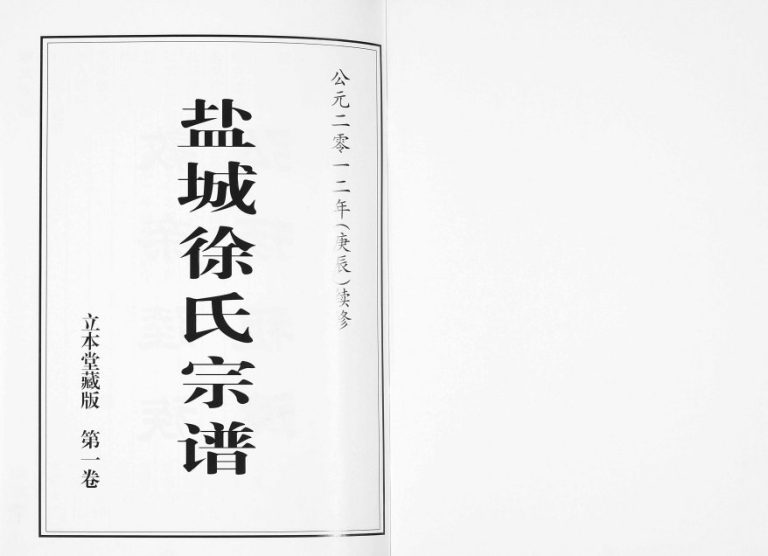 公元二零一二年(庚辰)续修
盐城徐氏宗谱
立本堂藏版 第一卷